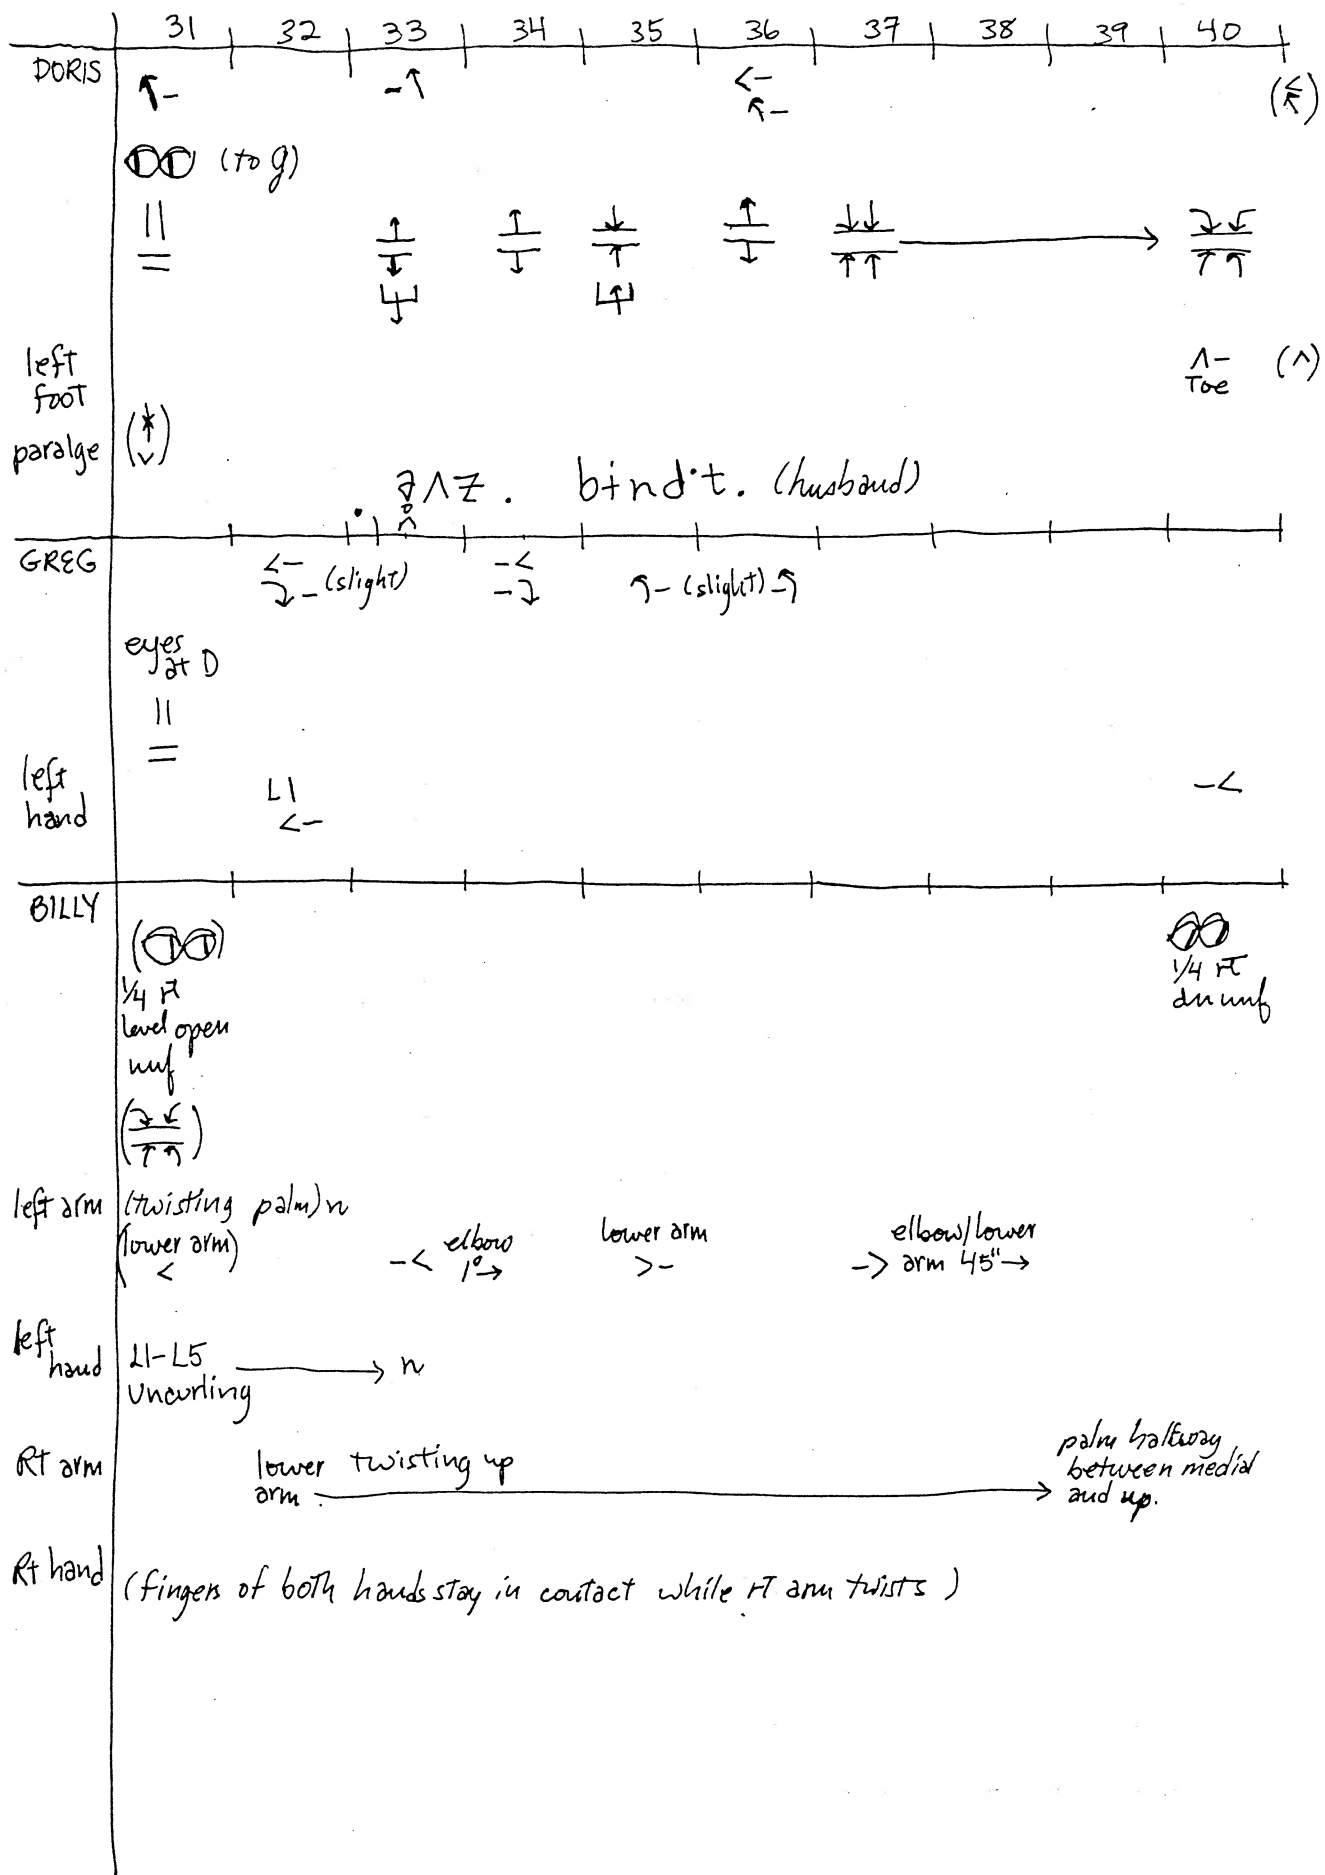 31 32 33 34 35 36 37 38 39 40
DORIS
(to g)
left
foot
Toe
paralge
(husband)
GREG
(slight) (slight)
eyes
at D
left
hand
L1
BILLY
1/4 rt
level open
1/4 rt
left arm (twisting palm) n
(lower arm) elbow lower arm elbow/lower
arm 45"
left
hand
L1-L5 n
Uncurling
Rt arm
lower twisting up
arm
palm halfway
between medial
and up.
Rt hand (fingers of both hands stay in contact while rt arm twists)